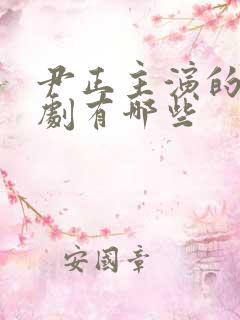 尹正主演的
劇有哪些
安國章